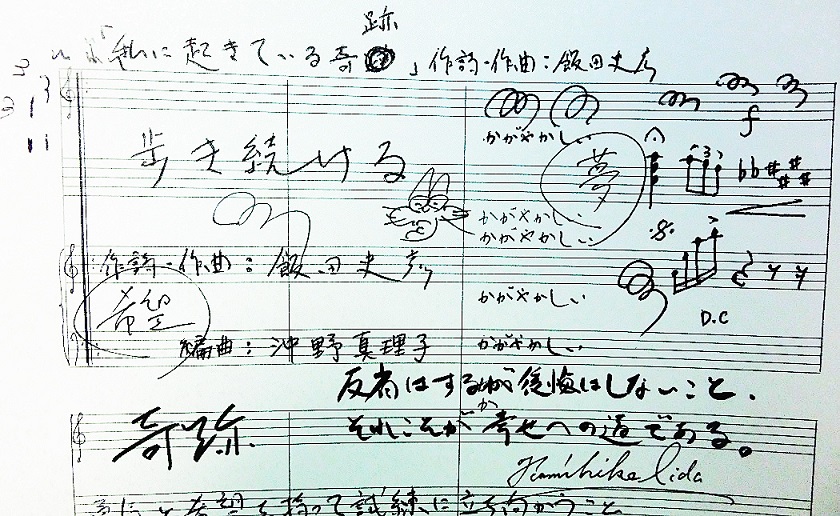 跡
「私に起きている奇」作詩・作曲：飯田史彦
かがやかしい
歩き続ける
夢
かがやかしい
かがやかしい
作詩・作曲：飯田史彦
かがやかしい
希望
D.C
編曲：沖野真理子
かがやかしい
反省はするが後悔はしないこと、
それこそが幸せへの道である。
か
奇跡
Fumihiko Iida
と希望を持って試練に立ち向かうこと